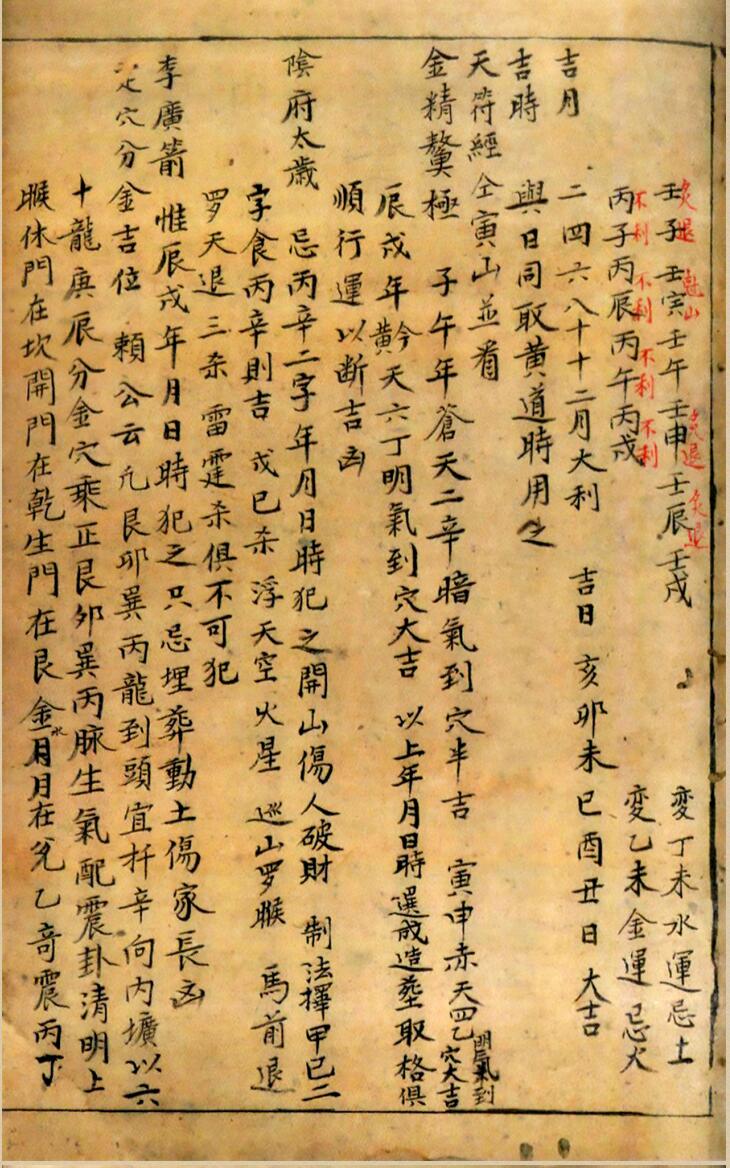 壬子 壬寅 壬午 壬申 壬辰 壬戌 変丁未水運忌土
炙退 剋山 炙退 炙退
丙子丙辰丙午丙戌 変乙未金運忌火
不利 不利 不利 不利
吉月 二四六八十十二月大利 吉日 亥卯未巳酉丑日大吉
吉時 與日同取黄道時用之
天符經 仝寅山並看
金精鰲極 子午年蒼天二辛暗氣到穴半吉 寅申赤天四乙明氣到穴大吉
辰戌年黅天六丁明氣到穴大吉 以上年月日時選成造塟取格俱
順行運以断吉凶
陰府太歲 忌丙辛二字年月日時犯之開山傷人破財 制法擇甲己二
字食丙辛則吉 戊己杀 浮天空 火星 巡山罗睺 馬前退
罗天退 三杀 雷霆杀俱不可犯
李廣箭 惟辰戌年月日時犯之只忌埋葬動土傷家長凶
定穴分金吉位 賴公云凢艮卯巽丙龍到頭宜扦辛向内壙以六
十龍庚辰分金穴乘正艮卯巽丙脉生氣配震卦清明上
睺休門在坎開門在乾生門在艮金水月在兊乙竒震丙丁